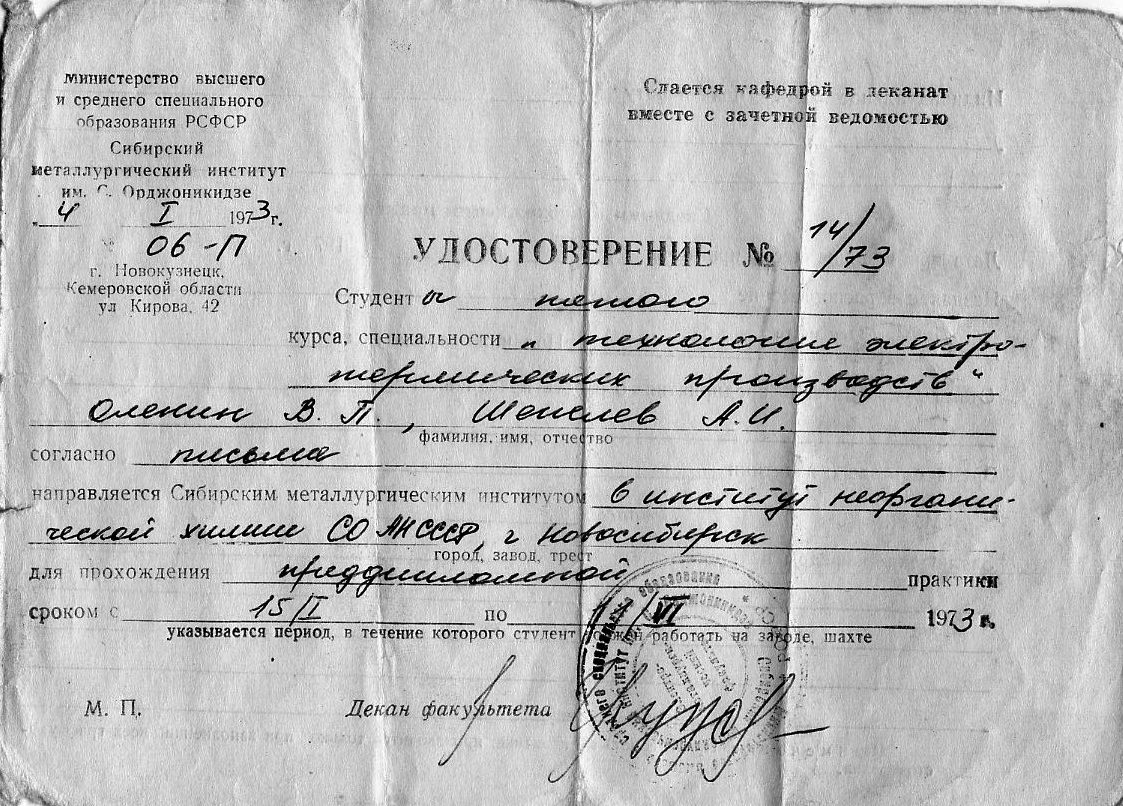 министерство высшего
и среднего специального
образования РСФСР
Сибирский
металлургический институт
им. С. Орджоникидзе
„ 4 I 1973 г.
06-П
г. Новокузнецк,
Кемеровской области
ул Кирова, 42
Сдается кафедрой в деканат
вместе с зачетной ведомостью
УДОСТОВЕРЕНИЕ № 14/73
Студент ы пятого
курса, специальности „ технология электро-
термических производств“
Оленин В. П., Шепелев А. И.
фамилия, имя, отчество
согласно письма
направляется Сибирским металлургическим институтом в институт неоргани-
ческой химии СО АН СССР, г Новосибирск
город, завод, трест
для прохождения преддипломной практики
сроком с 15/II по 11/VI 1973 г.
указывается период, в течение которого студент должен работать на заводе, шахте
М. П. Декан факультета